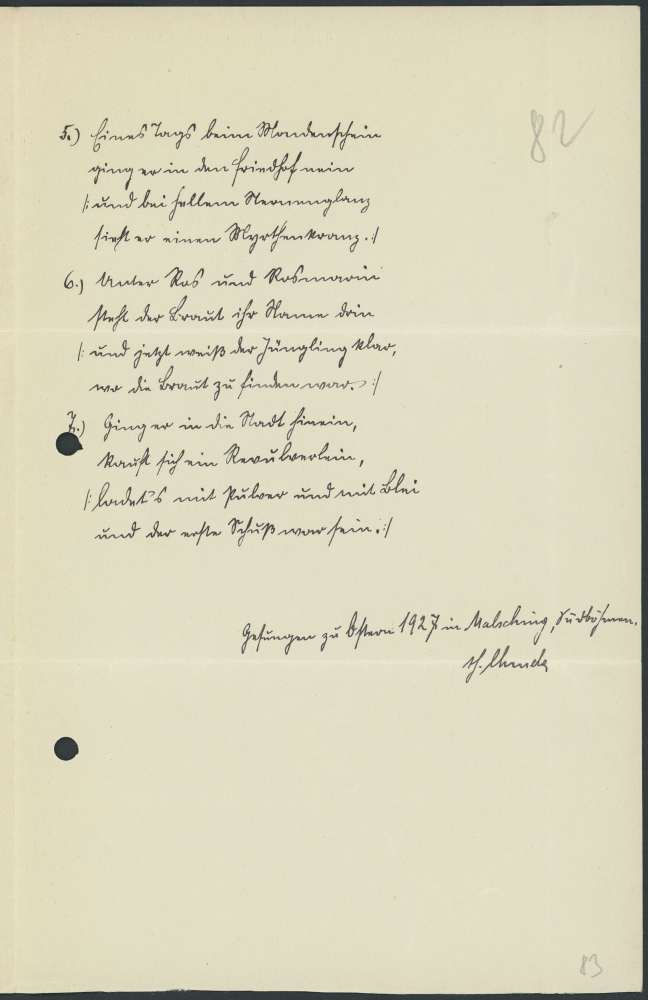 82
5.) Eines Tags beim Mondenschein
ging er in den Friedhof nein
/: und bei hellem Sternenglanz
sieht er einen Myrthenkranz. :/
6.) Unter Ros und Rosmarin
steht der Braut ihr Name drin
/: und jetzt weiß der Jüngling klar,
wo die Braut zu finden war. :/
7.) Ging er in die Stadt hinein,
kauft sich ein Revulverlein,
/: ladet's mit Pulver und mit Blei
und der erste Schuß war sein. :/
Gesungen zu Ostern 1927 in Malsching, Südböhmen.
83